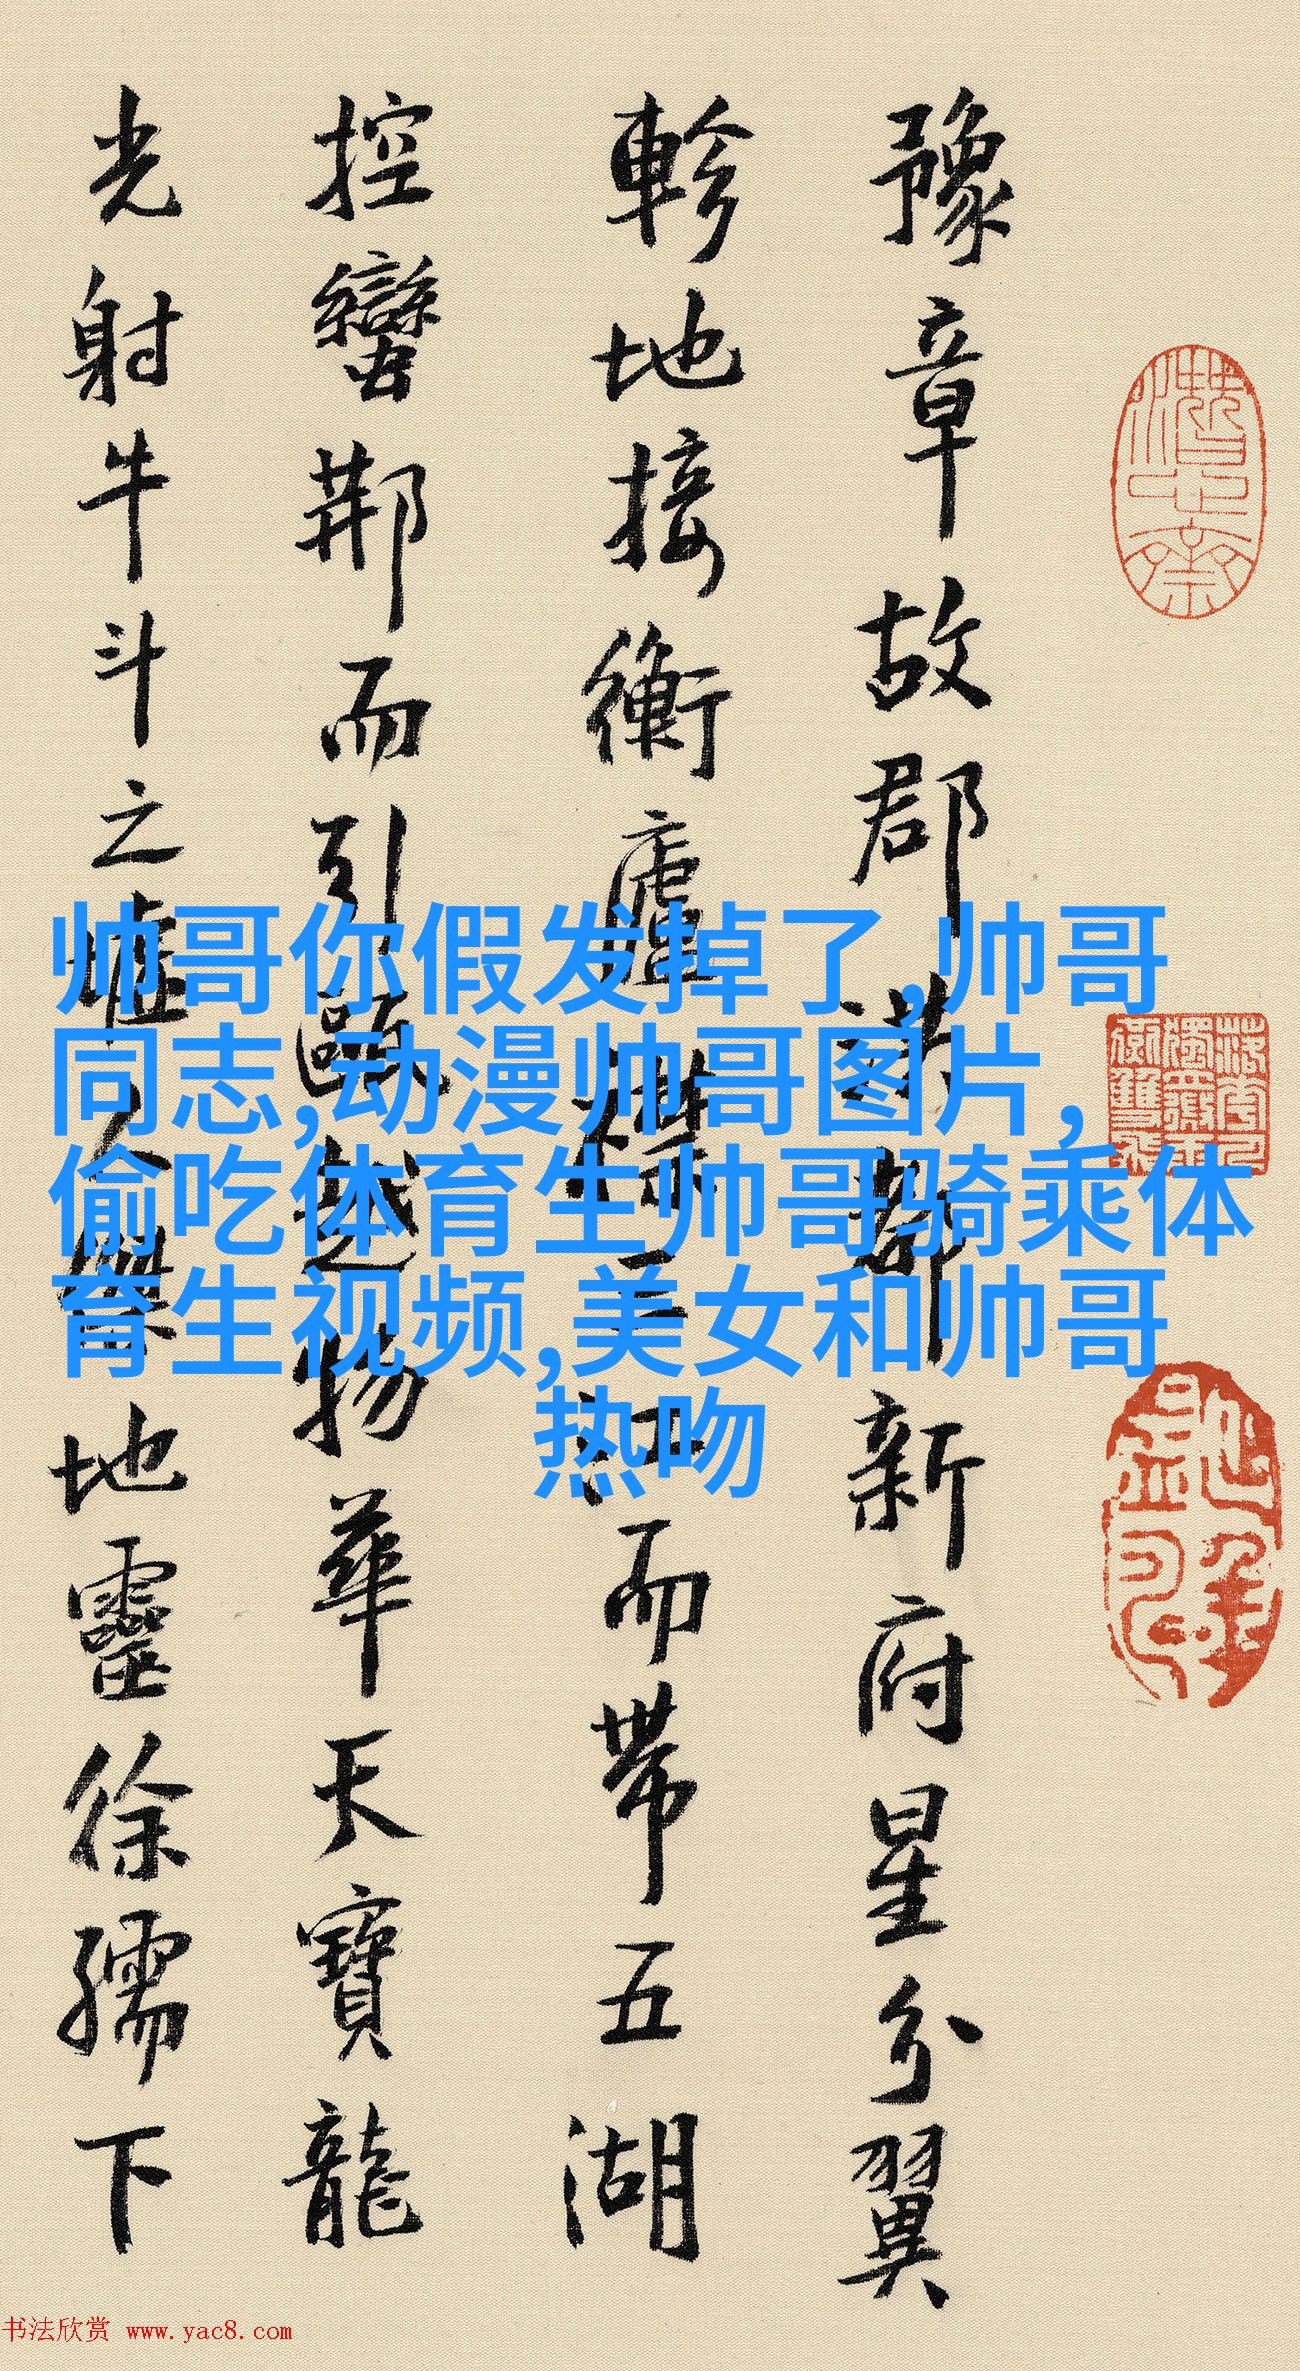 豫章故郡洪都新府星分翼
軫地接衡廬襟三江而帶五湖
控蠻荆而引甌越物華天寶龍
光射牛斗之墟人傑地靈徐孺下
帅哥你假发掉了,帅哥
同志,动漫帅哥图片,
偷吃体育生帅哥骑乘体
育生视频,美女和帅哥
热吻
书法欣赏 www.yac8.com